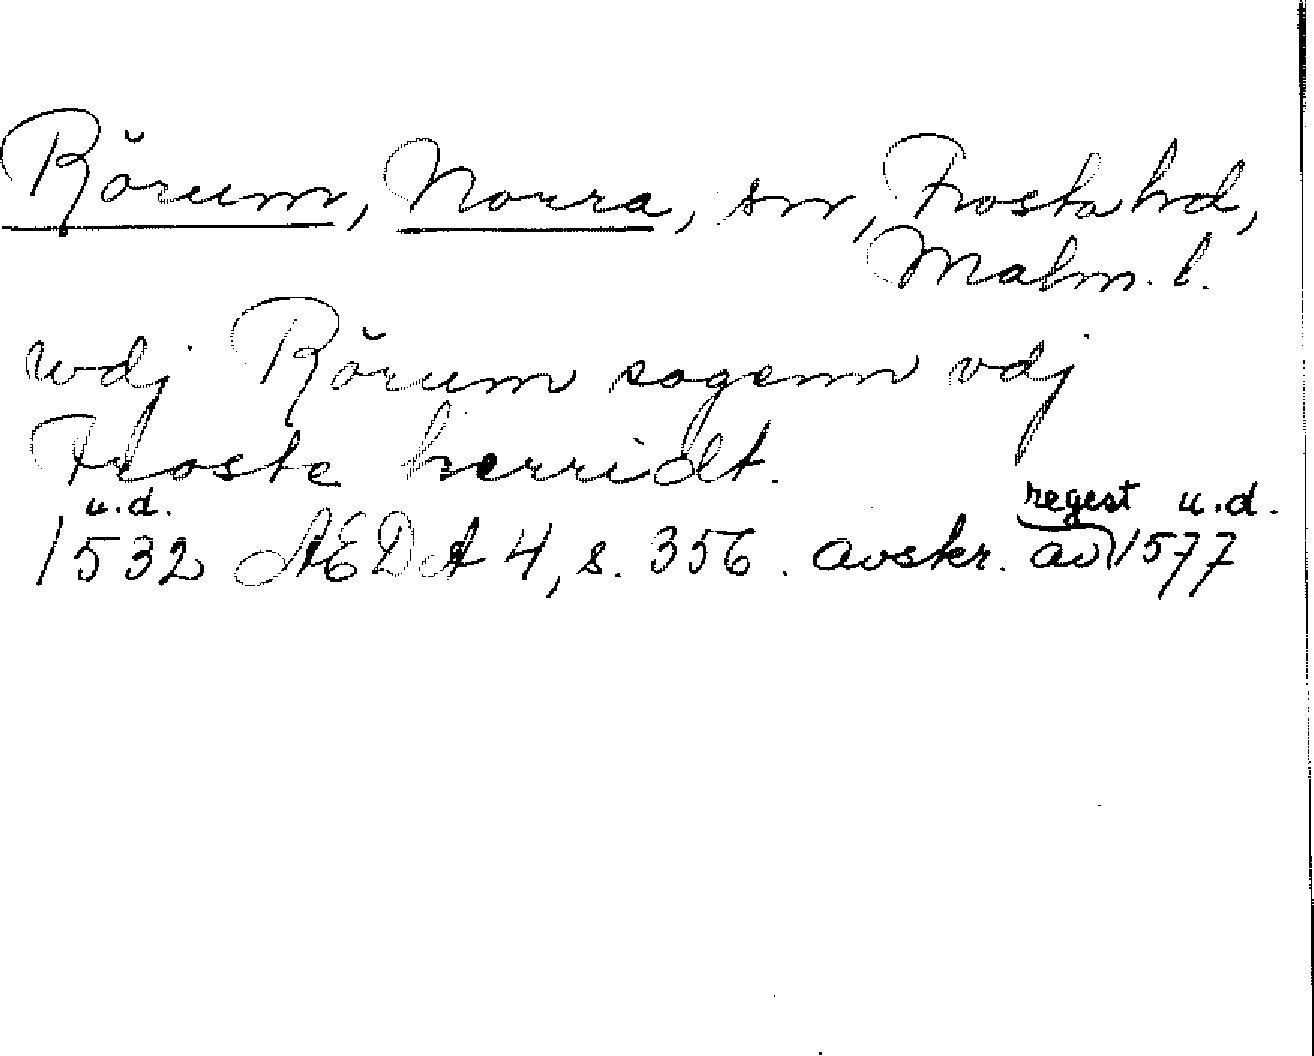 Rörum, Norra, sn, Frosta hd,
Malm. l.
wdj Rörum sogenn vdj
Froste herridt.
u.d. regest u.d.
1532 AEDA 4, s. 356. avskr. av 1577